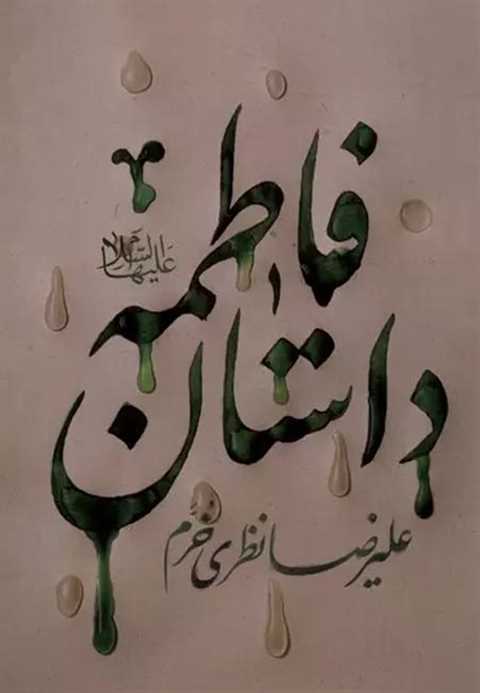 داستان
فاطمه
علیها السلام
۲
علیرضا نظری خرم